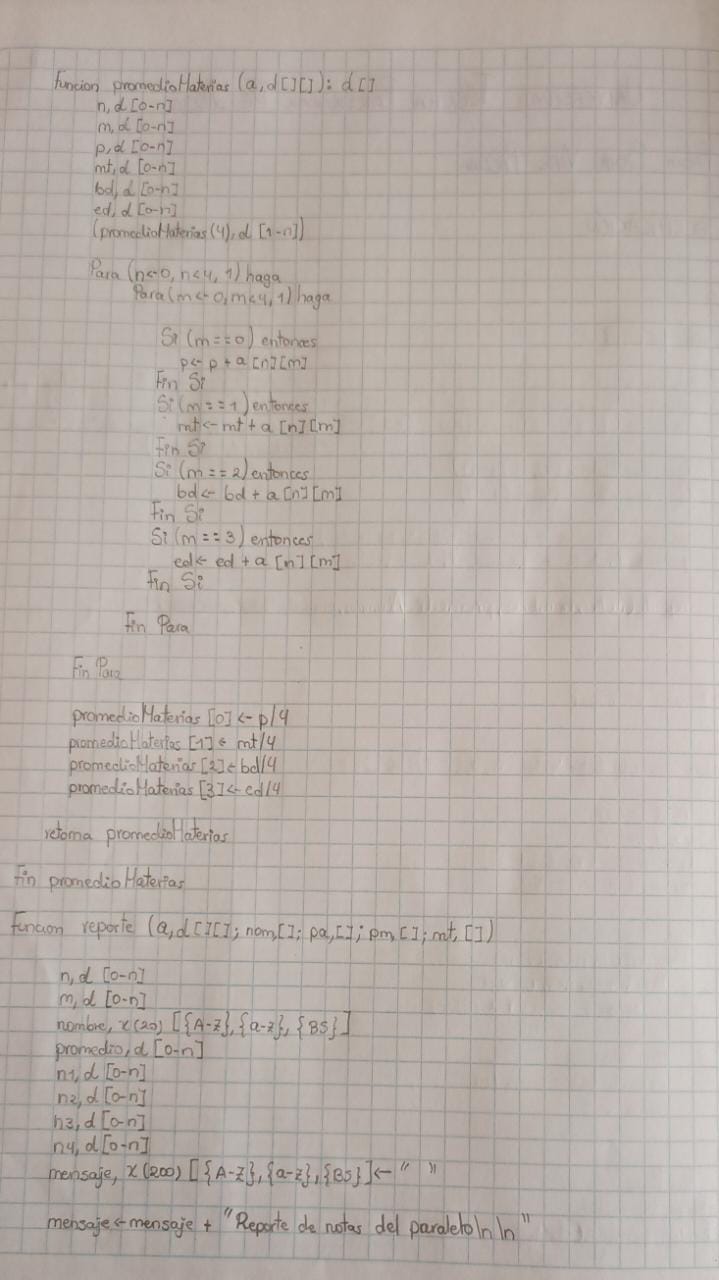 Funcion promedioMaterias (a,d[][]): d[]
n,d [0-n]
m,d [0-n]
p,d [0-n]
mt,d [0-n]
bd, d [0-n]
ed, d [0-n]
(promedioMaterias(4), d [1-n])
Para (n<-0, n<4, 1) haga
Para (m<-0, m<4, 1) haga
Si (m==0) entonces
p<- p + a [n][m]
Fin Si
Si (m==1) entonces
mt<- mt + a [n][m]
Fin Si
Si (m==2) entonces
bd<- bd + a [n][m]
Fin Si
Si (m==3) entonces
ed<- ed + a [n][m]
Fin Si
Fin Para
Fin Para
promedioMaterias [0] <- p/4
promedioMaterias [1] <- mt/4
promedioMaterias [2] <- bd/4
promedioMaterias [3] <- ed/4
retorna promedioMaterias
Fin promedioMaterias
Funcion reporte (a,d[][]; nom,[]; pa,[]; pm,[]; mt, [])
n,d [0-n]
m,d [0-n]
nombre, x(20) [{A-z},{a-z}, {BS}]
promedio, d [0-n]
n1, d [0-n]
n2, d [0-n]
n3, d [0-n]
n4, d [0-n]
mensaje, x(200) [{A-z},{a-z},{BS}]<- " "
mensaje <- mensaje + "Reporte de notas del paralelo\n\n"